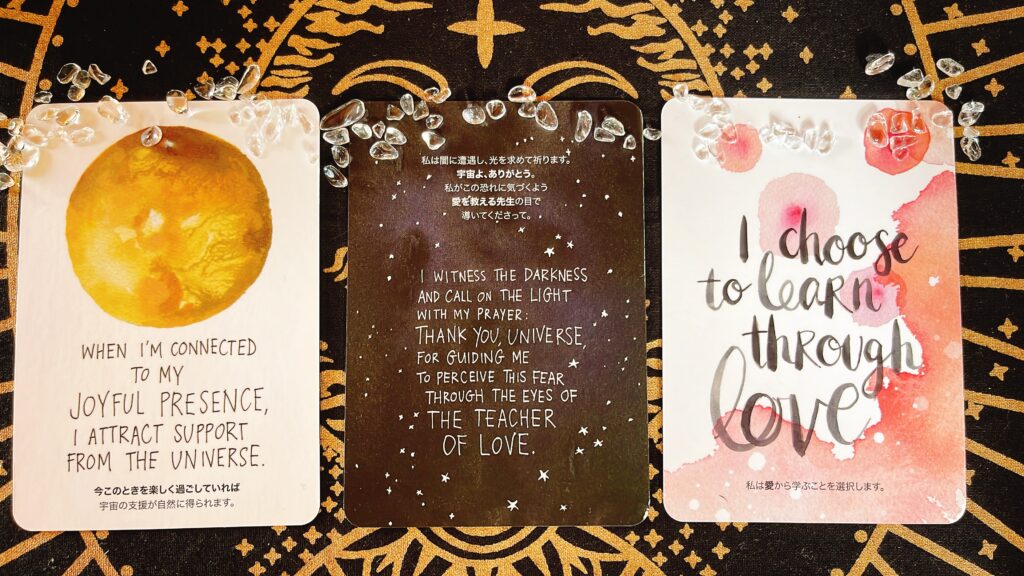 WHEN I'M CONNECTED
TO MY
JOYFUL PRESENCE,
I ATTRACT SUPPORT
FROM THE UNIVERSE.
今このときを楽しく過ごしていれば
宇宙の支援が自然に得られます。
私は闇に遭遇し、光を求めて祈ります。
宇宙よ、ありがとう。
私がこの恐れに気づくよう
愛を教える先生の目で
導いてくださって。
I WITNESS THE DARKNESS
AND CALL ON THE LIGHT
WITH MY PRAYER:
THANK YOU, UNIVERSE,
FOR GUIDING ME
TO PERCEIVE THIS FEAR
THROUGH THE EYES OF
THE TEACHER
OF LOVE.
I choose
to learn
through
love
私は愛から学ぶことを選択します。